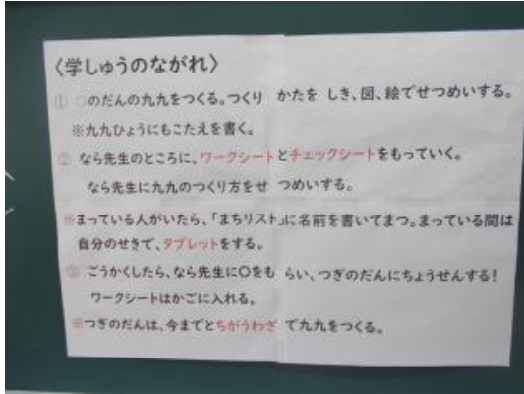 〈学しゅうのながれ〉
① ○のだんの九九をつくる。つくり かたを しき、図、絵でせつめいする。
※九九ひょうにもこたえを書く。
② なら先生のところに、ワークシートとチェックシートをもっていく。
なら先生に九九のつくり方をせ つめいする。
※まっている人がいたら、「まちリスト」に名前を書いてまつ。まっている間は
自分のせきで、タブレットをする。
③ ごうかくしたら、なら先生に〇をも らい、つぎのだんにちょうせんする!
ワークシートはかごに入れる。
※つぎのだんは、今までとちがうわざ で九九をつくる。